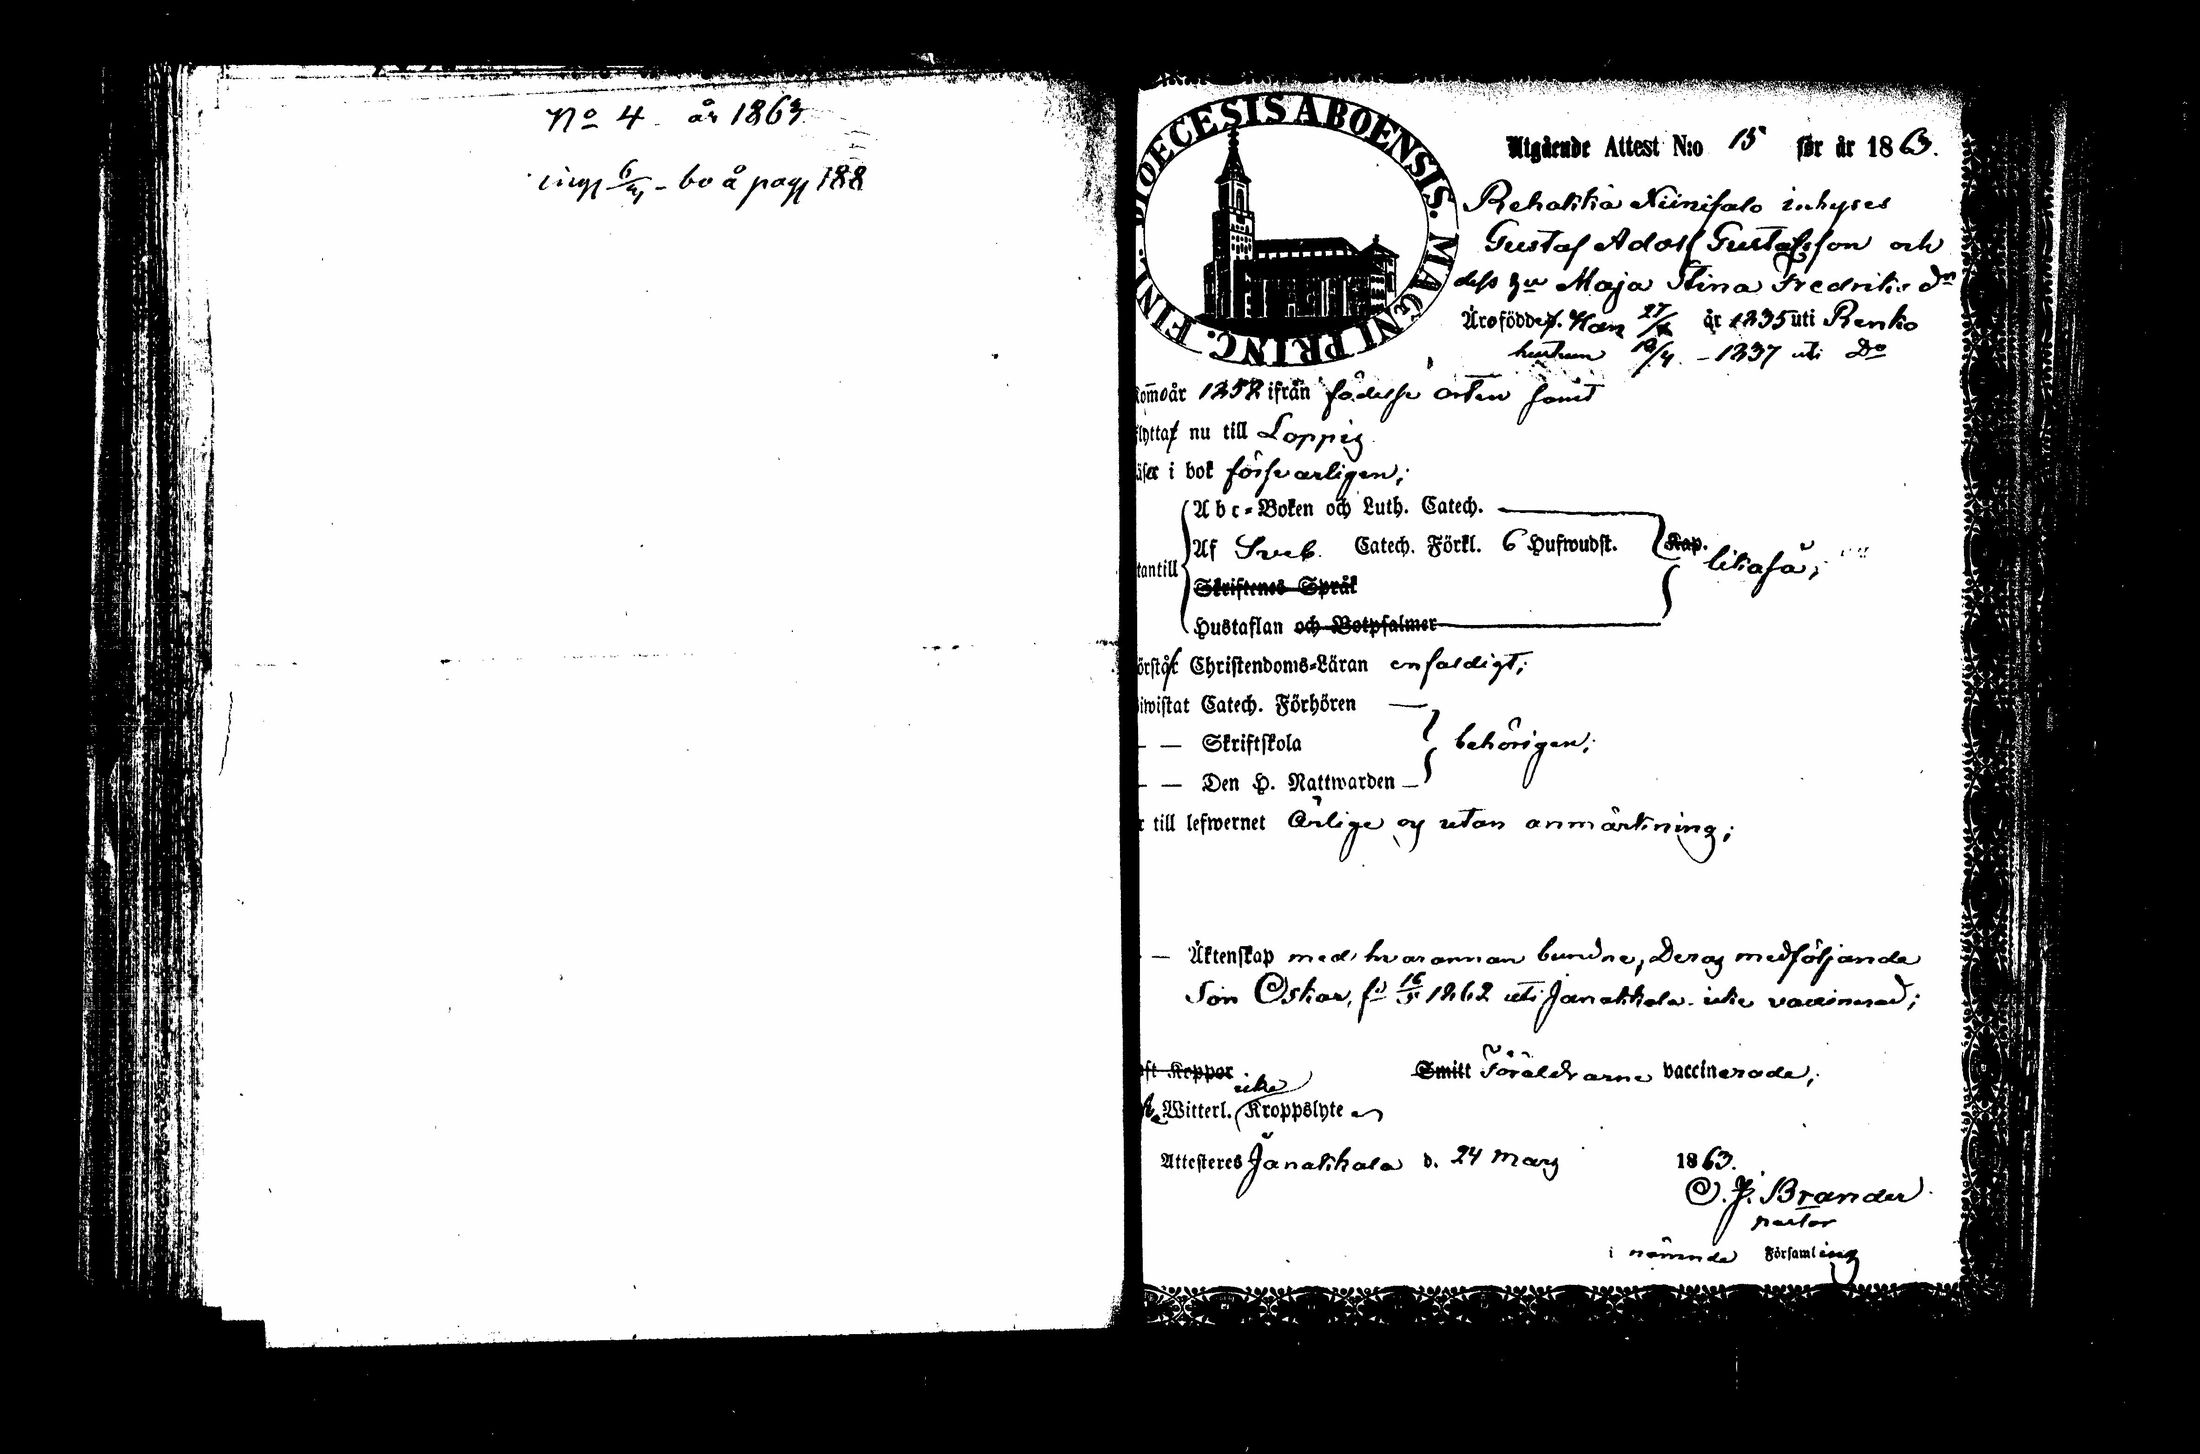 No 4. år 1863
ing 6/4 - bo å pag 188
DIOECESIS ABOENSIS. MAGNI PRINC. FINL.
Utgående Attest N:o 15 för år 1863.
Rehakka Niinisalo inhyses
Gustaf Adolf Gustafsson och
dess hu Maja Stina Fredriks dr
Äro födde. Han 27/ år 1835 uti Renko
hustrun /4 - 1837 uti Do
komo år 1858 ifrån födelse orten samt
flytta nu till Loppis
läser i bok försvarligen;
Abc-Boken och Luth. Catech.
Af Sveb. Catech. Förkl. 6 Hufwudst. Kap. likaså;
tantill
Skriftenes Språk
Hustaflan och Botpsalmer
örstår Christendoms-Läran enfaldigt;
iwistat Catech. Förhören —
— — Skriftskola behörigen;
— — Den H. Nattwarden —
r till lefwernet ärlige og utan anmärkning;
— Äktenskap med hvarannan bundne, Deras medföljande
Son Oskar, fd 16/5 1862 uti Janakkala icke vaccinerad;
ft Koppor Smitt Föräldrarne vaccinerade;
icke
Witterl. Kroppslyte
Attesteres Janakkala d. 24 Mars 1863.
C. J. Brander
pastor
i nämnde Församling